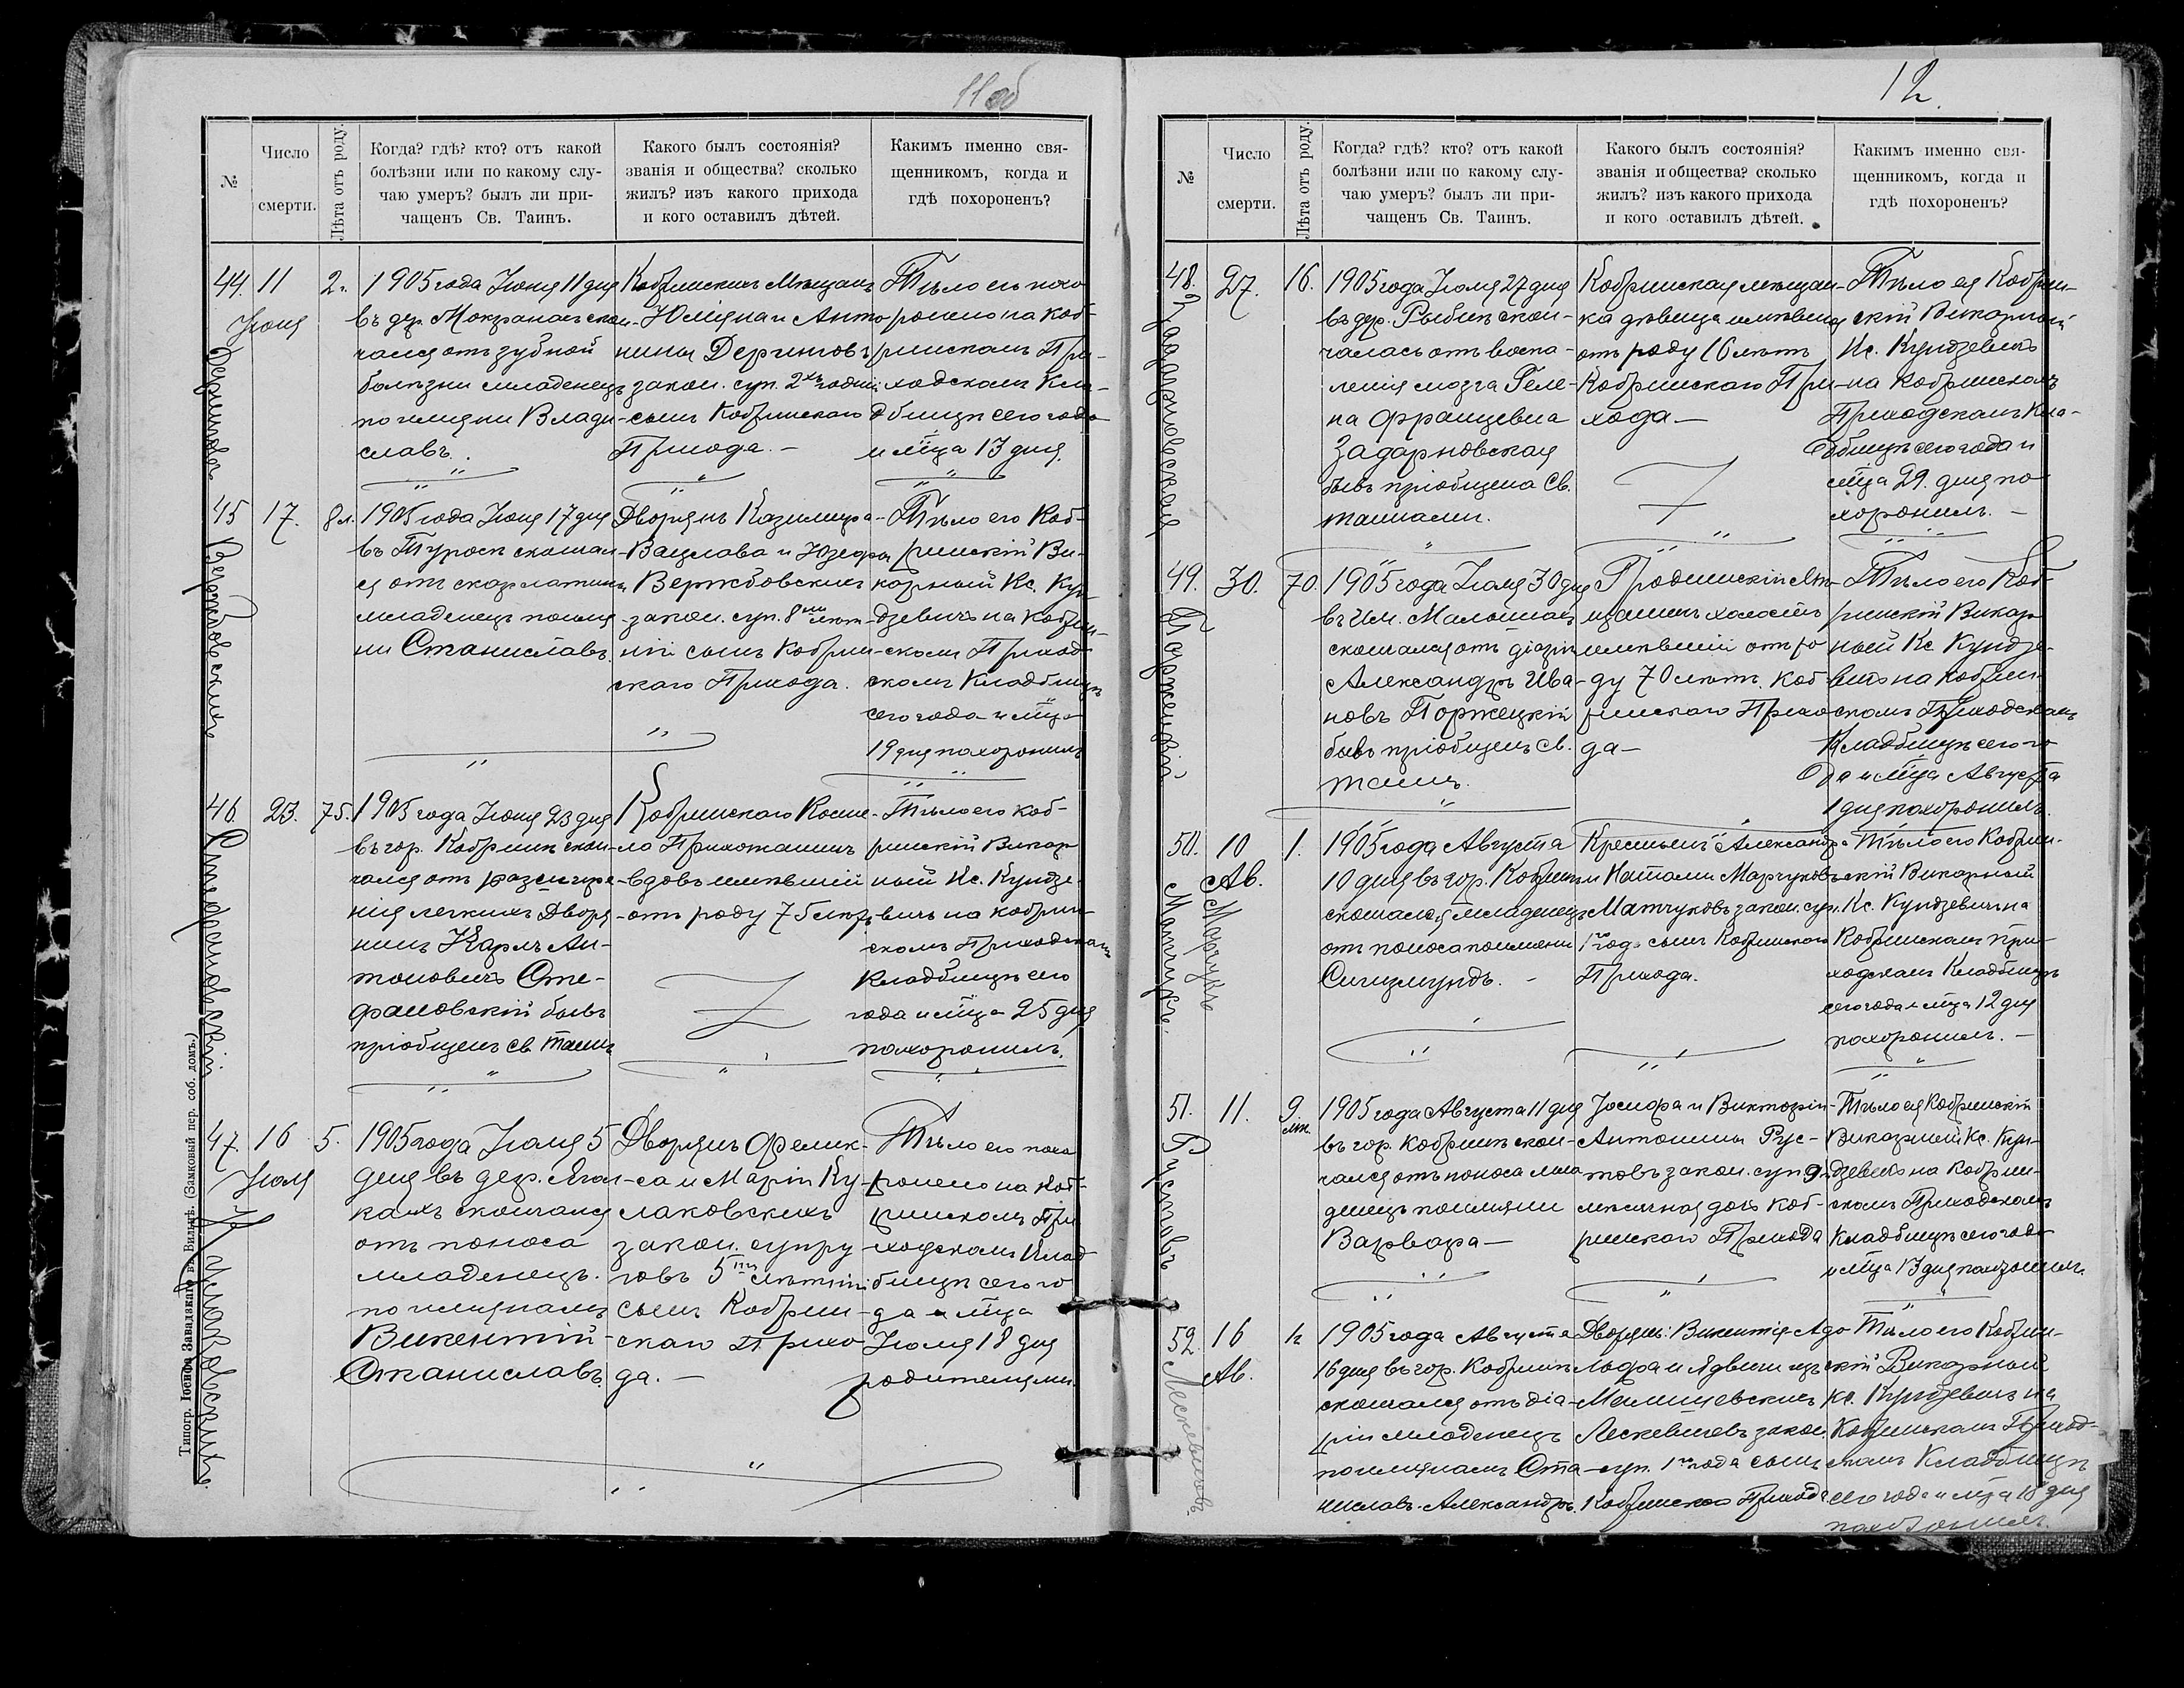 11об
№
Число смерти.
Лѣта отъ роду.
Когда? гдѣ? кто? отъ какой
болѣзни или по какому слу-
чаю умеръ? былъ ли при-
чащенъ Св. Таинъ.
Какого былъ состоянія?
званія и общества? сколько
жилъ? изъ какого прихода
и кого оставилъ дѣтей.
Какимъ именно свя-
щенникомъ, когда и
гдѣ похороненъ?
44. 11 2 г.
Іюня
1905 года Іюня 11 дня
въ дер. Мокранахъ скон-
чался отъ зубной
болѣзни младенецъ
по имени Влади-
славъ.
Кобринскихъ Мѣщанъ
Юліяна и Анто
нины
закон. суп. 2хъ годній
сынъ Кобринскаго
Прихода. —
Тѣло его похо
ронено на Коб-
ринскомъ При-
ходскомъ Кла-
дбищѣ сего года
и мѣсца 13 дня.
45 17. 8 л.
Вержбовскихъ
1905 года Іюня 17 дня
въ скончал-
ся отъ скарлатины
младенецъ по име
ни Станиславъ.
Дворянъ Казимира-
Вацлава и Юзефы
Вержбовскихъ
закон. суп. 8ми лѣт-
ній сынъ Кобрин-
скаго Прихода.
Тѣло его Коб-
ринскій Ви-
карный Кс. Кун-
дзевичъ на Кобрин-
скомъ Приход
скомъ Кладбищѣ
сего года и мѣсца
19 дня похоронилъ
46. 23. 75.
Стефановскій
1905 года Іюня 23 дня
въ гор. Кобринѣ скон-
чался отъ
нія легкихъ Дворя
нинъ Карлъ Ан-
тоновичъ Сте-
фановскій бывъ
пріобщенъ Св. Таинъ
Кобринскаго Косте-
ла Прихожанинъ
вдовъ имѣвшій
отъ роду 75 лѣтъ
Тѣло его Коб-
ринскій Викар
ный Кс. Кундзе-
вичъ на Кобрин-
скомъ Приходскомъ
Кладбищѣ сего
года и мѣсца 25 дня
похоронилъ.
47. 16 5.
Іюля
Кулаковскихъ
1905 года Іюля 5
дня въ дер.
кахъ скончался
отъ поноса
младенецъ.
по именамъ
Викентій-
Станиславъ.
Дворянъ Феликс-
са и Маріи Ку-
лаковскихъ
закон. супру
говъ 5ти лѣтній
сынъ Кобрин-
скаго Прихо
да. —
Тѣло его похо
ронено на Коб-
ринскомъ При
ходскомъ Клад
бищѣ сего го
да и мѣсца
Іюля 18 дня
родителями.
Типогр. Іосифа Завадзкаго въ Вильнѣ. (Замковый пер. соб. домъ.)
12.
№
Число смерти.
Лѣта отъ роду.
Когда? гдѣ? кто? отъ какой
болѣзни или по какому слу-
чаю умеръ? былъ ли при-
чащенъ Св. Таинъ.
Какого былъ состоянія?
званія и общества? сколько
жилъ? изъ какого прихода
и кого оставилъ дѣтей.
Какимъ именно свя-
щенникомъ, когда и
гдѣ похороненъ?
48. 27. 16.
Задарновская
1905 года Іюля 27 дня
въ дер. Рыбнѣ скон-
чалась отъ воспа-
ленія мозга Геле-
на Францевна
Задарновская
бывъ пріобщена Св.
таинами.
Кобринская мѣщан-
ка дѣвица имѣвшая
отъ роду 16 лѣтъ
Кобринскаго При-
хода —
Тѣло ея Кобрин-
скій Викарный
Кс. Кундзевичъ
на Кобринскомъ
Приходскомъ Кла-
дбищѣ сего года и
мѣсца 29. дня по
хоронилъ. —
49. 30. 70.
Поржецкій
1905 года Іюля 30 дня
въ Им. скон-
чался отъ
Александръ Ива-
новъ Поржецкій
бывъ пріобщенъ Св.
таинъ.
Гродненскій Мѣ-
щанинъ холостъ
имѣвшій отъ ро
ду 70 лѣтъ. Коб-
ринскаго Прихо
да —
Тѣло его Коб-
ринскій Викар
ный Кс Кундзе-
вичъ на Кобрин-
скомъ Приходскомъ
Кладбищѣ сего го
да и мѣсца Августа
1 дня похоронилъ.
50. 10 1.
Ав.
1905 года Августа
10 дня въ гор. Кобринѣ
скончался младенецъ
отъ поноса по имени
Сигизмундъ. —
Крестьянъ Александра
и Наталіи Марчуковъ
закон. суп.
1го год. сынъ Кобринскаго
Прихода.
Тѣло его Кобрин-
скій Викарный
Кс. Кундзевичъ на
Кобринскомъ При-
ходскомъ Кладбищѣ
сего года и мѣсца 12 дня
похоронилъ. —
51. 11. 9. мѣ.
Рустовъ
1905 года Августа 11 дня
въ гор. Кобринѣ скон-
чался отъ поноса мла
денецъ по имени
Варвара —
Іосифа и Викторіи-
Антонины Рус-
товъ закон. суп 9
мѣсячная дочь Коб-
ринскаго Прихода
Тѣло ея Кобринскій
Викарный Кс. Кун-
дзевичъ на Кобрин-
скомъ Приходскомъ
Кладбищѣ сего года
и мѣсца 13 дня похоронилъ.
52. 16
Ав.
Лескевичовъ
1905 года Августа
16 дня въ гор. Кобринѣ
скончался отъ діа-
ріи младенецъ
по именамъ Ста-
ниславъ-Александръ.
Дворянъ: Викентія Адо
льфа и Ядвиги изъ
Лескевичовъ закон.
суп. 1го года сынъ
Кобринскаго Прихода
Тѣло его Кобрин-
скій Викарный
Кс. Кундзевичъ на
Кобринскомъ Приход-
скомъ Кладбищѣ
сего года и мѣсца 18 дня
похоронилъ.